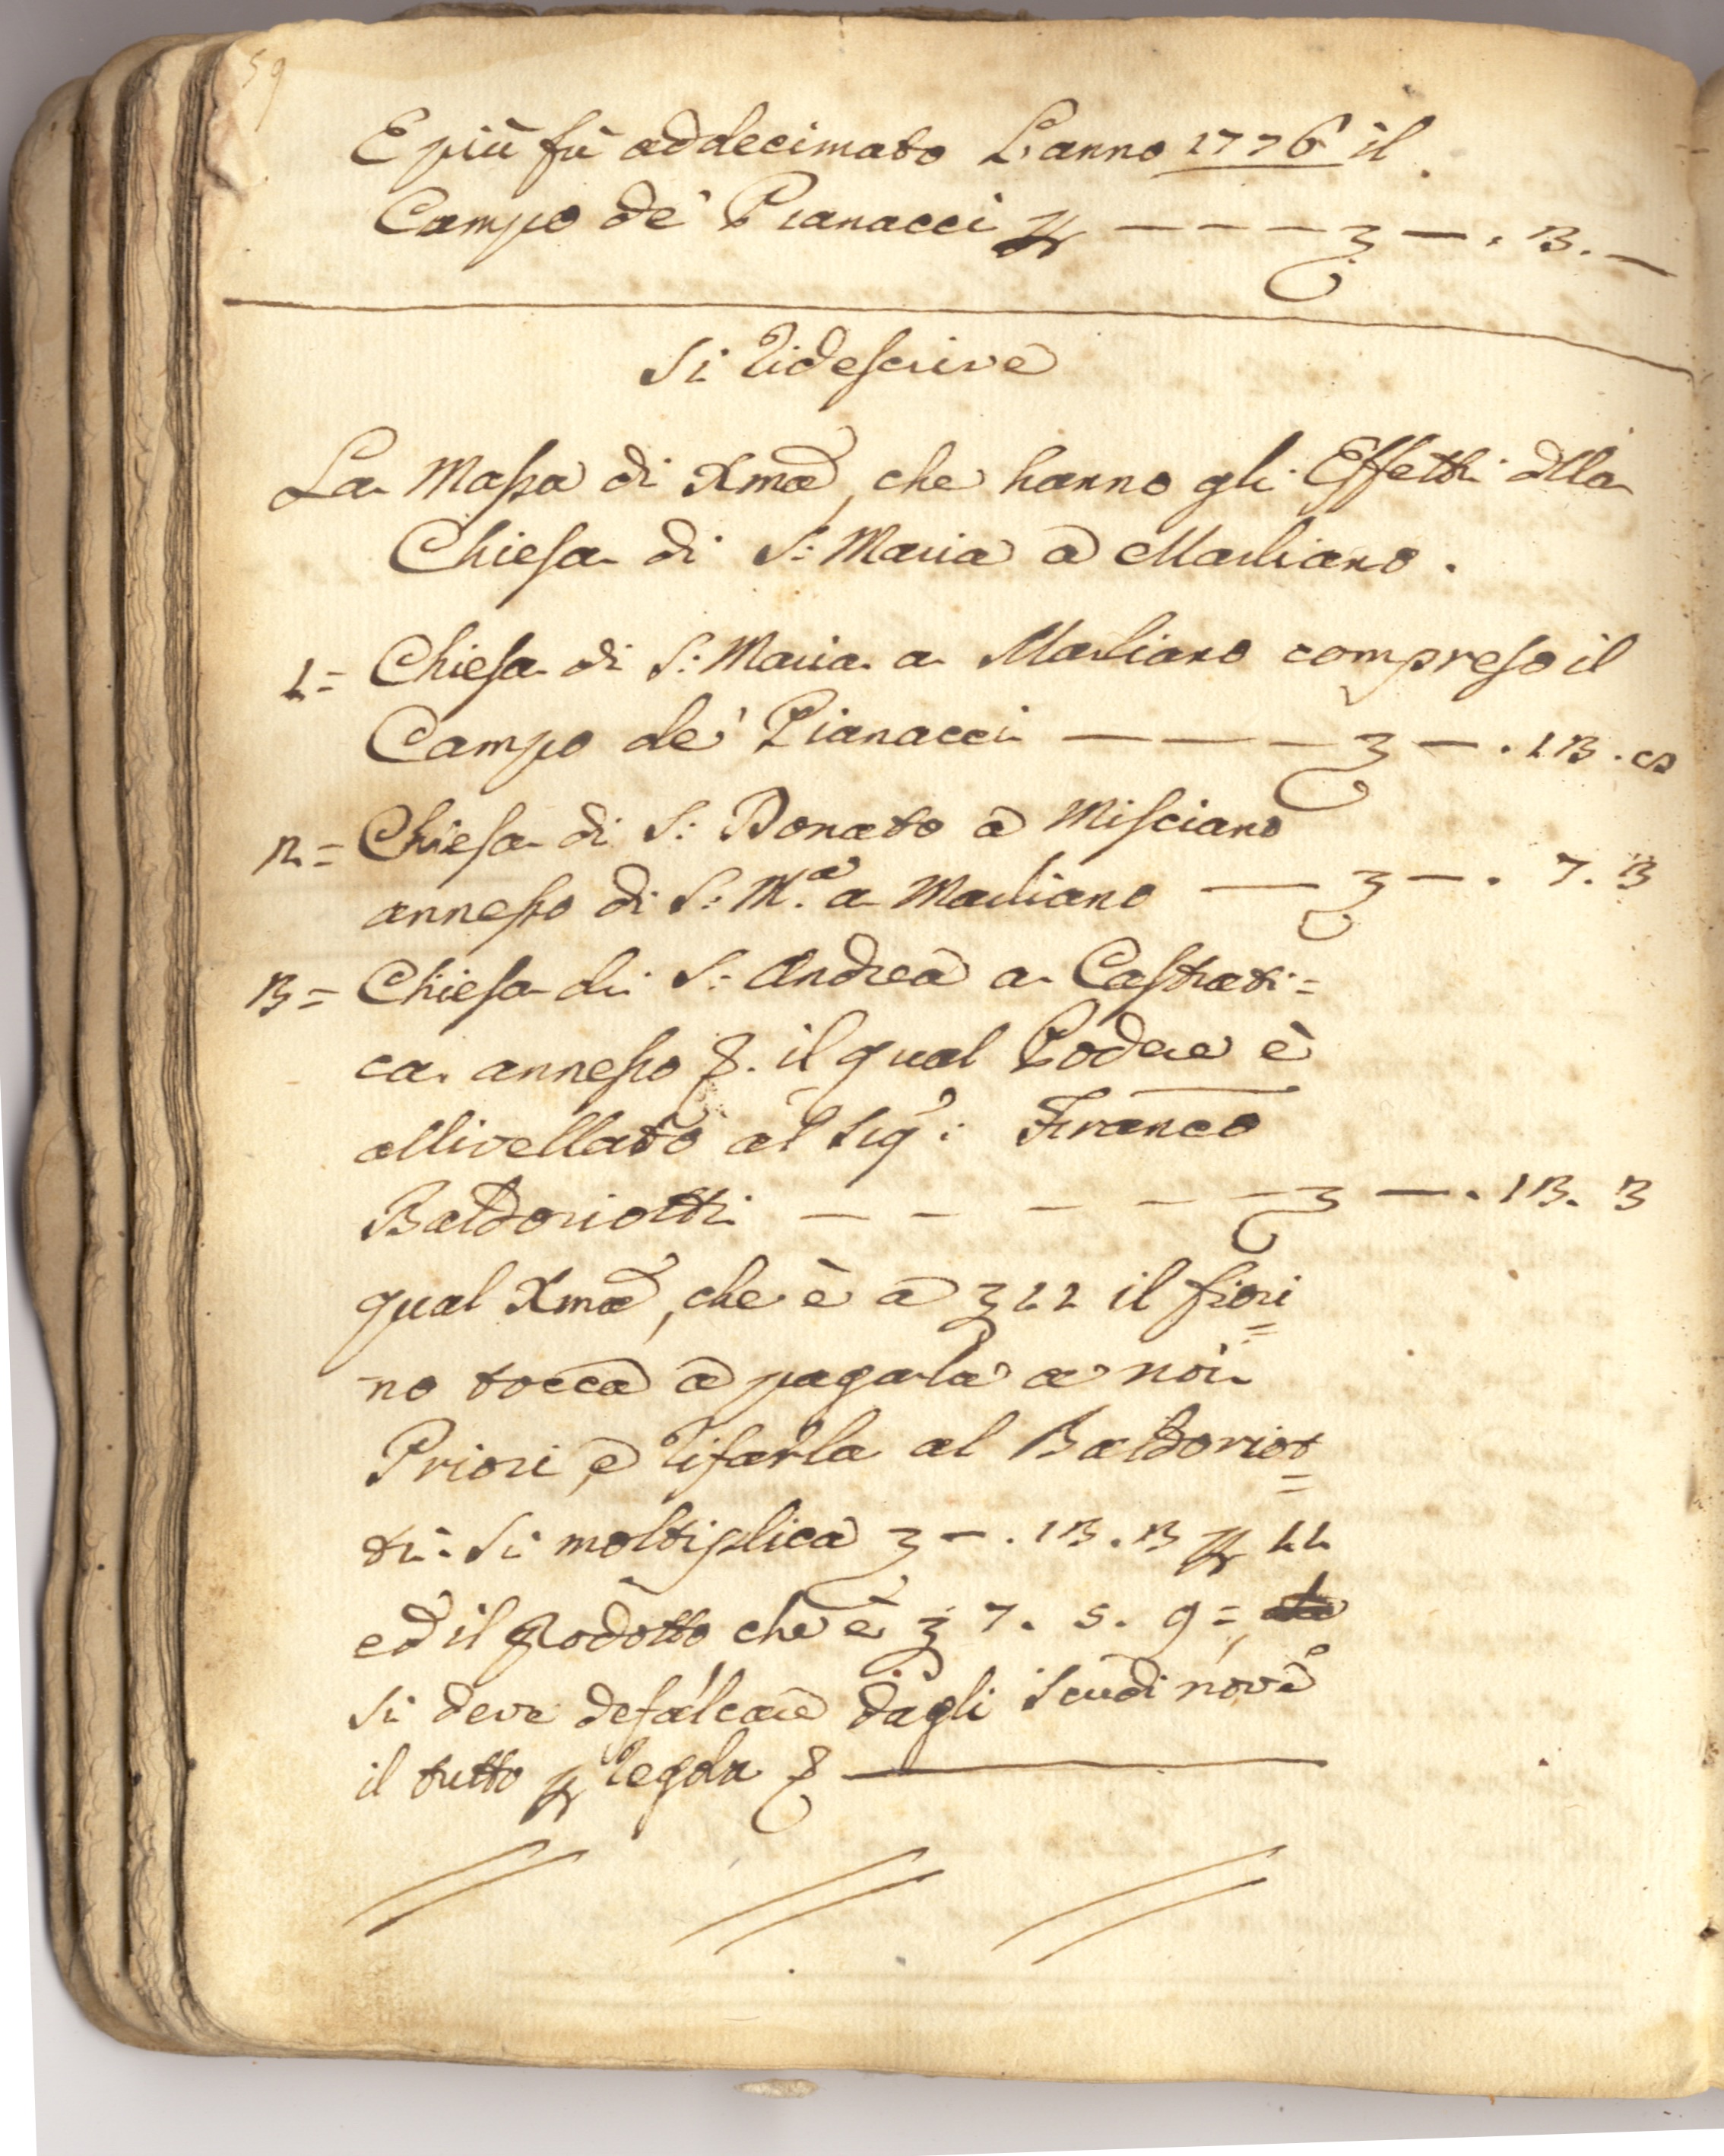 59
E più fù addecimato L'anno 1776 il
Campo de' Pianacci p — — — — — . 3. —
Si ridescrive
La Massa di Xma, che hanno gli Effetti dlla
Chiesa di S: Maria à Marliano.
1= Chiesa di S: Maria a Marliano compreso il
Campo de' Pianacci — — — — — . 13.
2= Chiesa di S: Donato à Misciano
annesso di S: M.a a Marliano — — . 7. 3
3= Chiesa di S: Andrea a Castrati=
ca annesso &. il qual Podere è
allivellato al Sig.e: Franco
Baldoriotti — — — — — — . 13. 3
qual Xma, che è a 11 il fiori
=
no tocca à pagarla a noi
Priori, e rifarla al Baldoriot
=
ti. Si moltiplica — . 13. 3 p 11
ed il Prodotto, che è 7. 5. 9 =
si deve defalcare dagli Scudi nove
il tutto p regola &